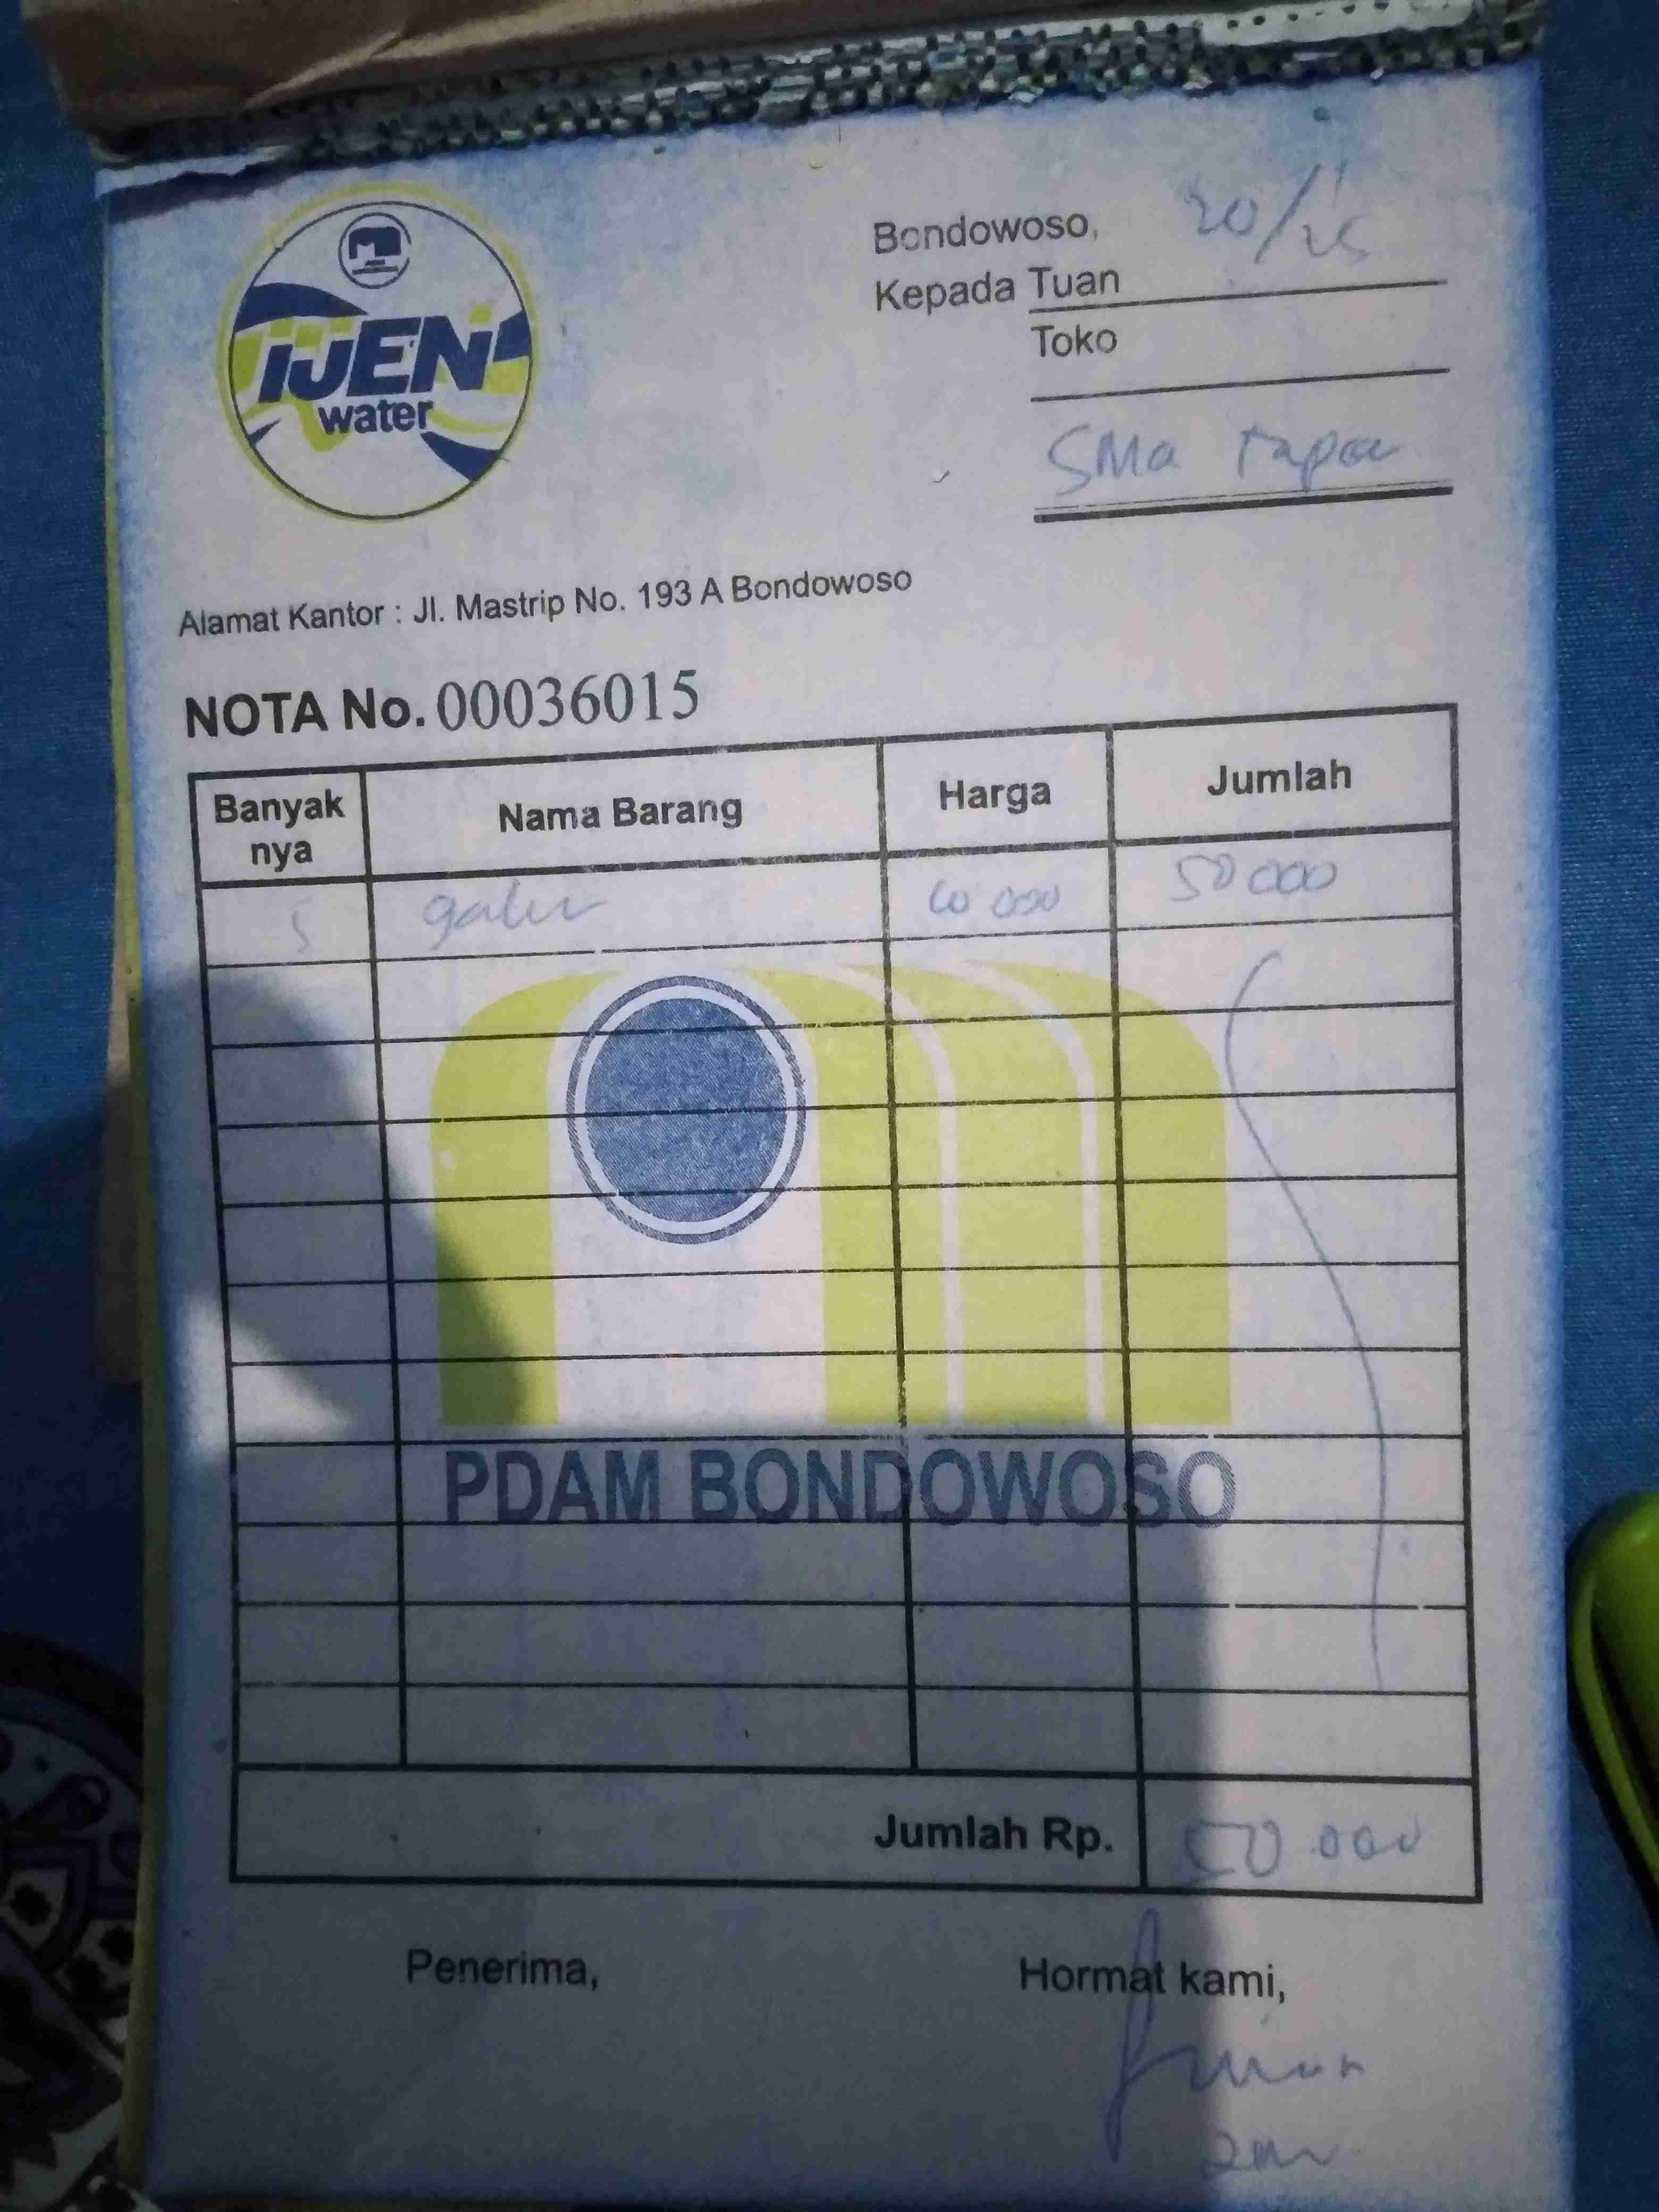 IJEN
water
Bondowoso, 20/11 25
Kepada Tuan
Toko
SMA Tapen
Alamat Kantor : Jl. Mastrip No. 193 A Bondowoso
NOTA No. 00036015
Banyak nya Nama Barang Harga Jumlah
5 galon 10 000 50 000
PDAM BONDOWOSO
Jumlah Rp. 50.000
Penerima, Hormat kami,